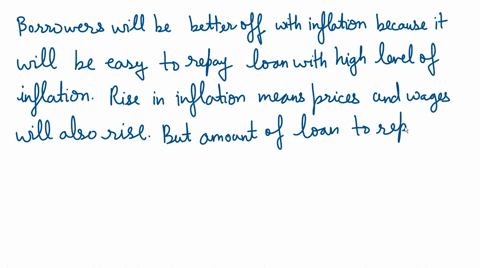 Borrowers will be better off with inflation because it
will be easy to repay loan with high level of
inflation. Rise in inflation means prices and wages
will also rise. But amount of loan to rep